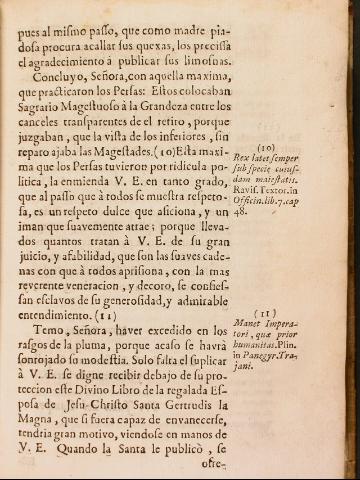 pues al mismo passo, que como madre pia-
dosa procura acallar sus quexas, los precissa
el agradecimiento à publicar sus limosnas.
Concluyo, Señora, con aquella maxima,
que practicaron los Persas: Estos colocaban
Sagrario Magestuoso à la Grandeza entre los
canceles transparentes de el retiro, porque
juzgaban, que la vista de los inferiores, sin
reparo ajaba las Magestades. (10) Esta maxi-
ma que los Persas tuvieron por ridicula po-
litica, la enmienda V. E. en tanto grado,
que al passo que à todos se muestra respeto-
sa, es un respeto dulce que aficiona, y un
iman que suavemente atrae; porque lleva-
dos quantos tratan à V. E. de su gran
juicio, y afabilidad, que son las suaves cade-
nas con que à todos aprisiona, con la mas
reverente veneracion, y decoro, se confies-
san esclavos de su generosidad, y admirable
entendimiento. (11)
Temo, Señora, haver excedido en los
rasgos de la pluma, porque acaso se havrà
sonrojado su modestia. Solo falta el suplicar
à V. E. se digne recibir debajo de su pro-
teccion este Divino Libro de la regalada Es-
posa de Jesu-Christo Santa Gertrudis la
Magna, que si fuera capaz de envanecerse,
tendria gran motivo, viendose en manos de
V. E. Quando la Santa le publicò, se
ofre-
(10)
Rex latet semper
sub specie cuius-
dam maiestatis.
Ravis. Textor. in
Officin. lib. 7. cap
48.
(11)
Manet Impera-
tori, quæ prior
humanitas. Plin.
in Panegyr. Tra-
jani.